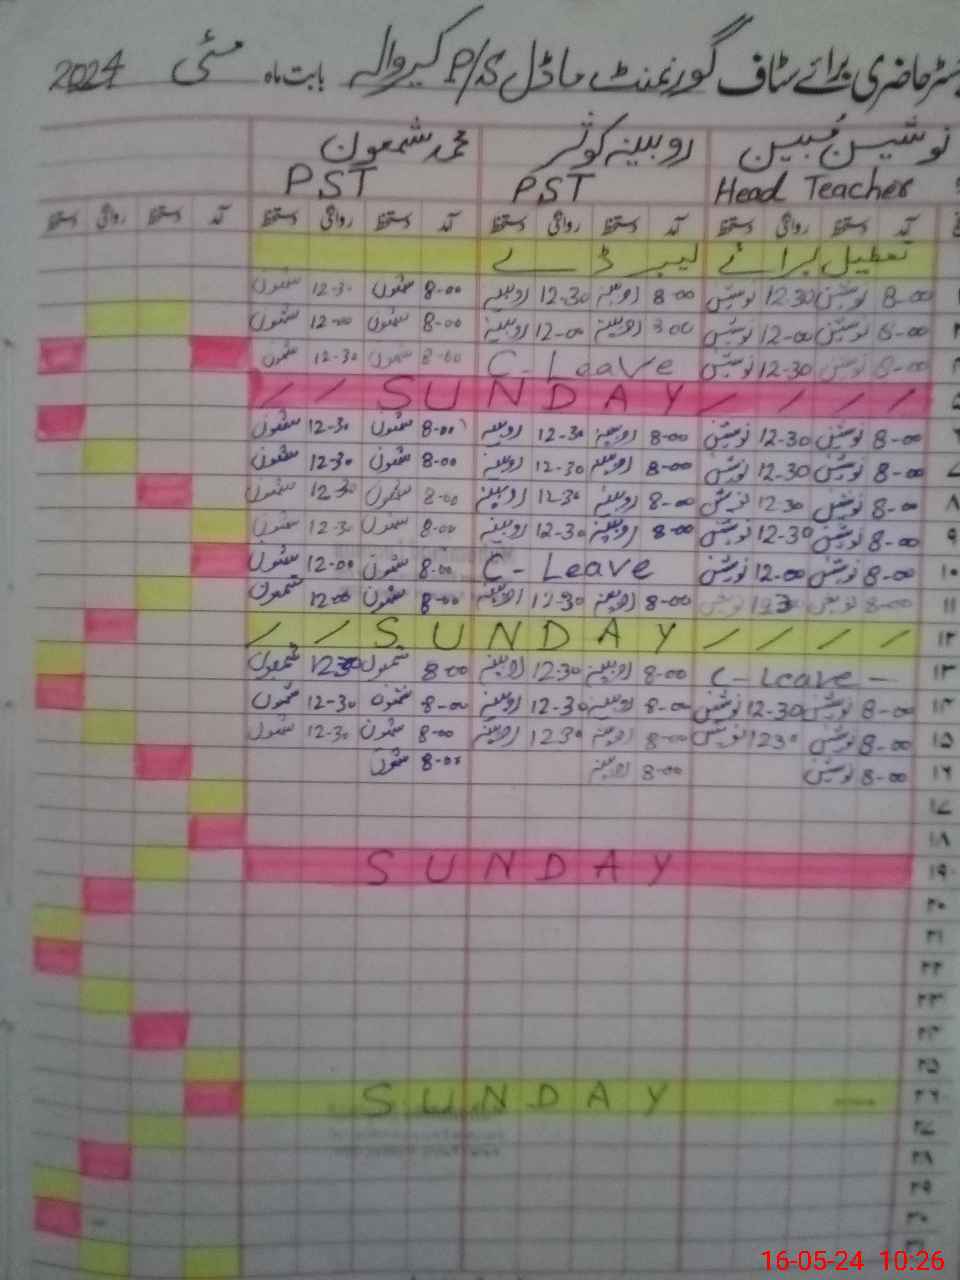 رجسٹر حاضری برائے سٹاف گورنمنٹ ماڈل P/S کیروالہ بابت ماہ مئی 2024
نوشین مبین روبینہ کوثر محمد شمعون
Head Teacher PST PST
آمد دستخط روانگی دستخط آمد دستخط روانگی دستخط آمد دستخط روانگی دستخط آمد دستخط روانگی دستخط
تعطیل برائے لیبر ڈے
8-00 نوشین 12-30 نوشین 8-00 روبینہ 12-30 روبینہ 8-00 شمعون 12-30 شمعون
8-00 نوشین 12-00 نوشین 8-00 روبینہ 12-00 روبینہ 8-00 شمعون 12-00 شمعون
8-00 نوشین 12-30 نوشین C-Leave 8-00 شمعون 12-30 شمعون
SUNDAY
8-00 نوشین 12-30 نوشین 8-00 روبینہ 12-30 روبینہ 8-00 شمعون 12-30 شمعون
8-00 نوشین 12-30 نوشین 8-00 روبینہ 12-30 روبینہ 8-00 شمعون 12-30 شمعون
۸ 8-00 نوشین 12-30 نوشین 8-00 روبینہ 12-30 روبینہ 8-00 شمعون 12-30 شمعون
۹ 8-00 نوشین 12-30 نوشین 8-00 روبینہ 12-30 روبینہ 8-00 شمعون 12-30 شمعون
۱۰ 8-00 نوشین 12-00 نوشین C-Leave 8-00 شمعون 12-00 شمعون
۱۱ 8-00 نوشین 1230 نوشین 8-00 روبینہ 12-30 روبینہ 8-00 شمعون 1200 شمعون
۱۲ SUNDAY
۱۳ C-Leave- 8-00 روبینہ 12-30 روبینہ 8-00 شمعون 1230 شمعون
۱۴ 8-00 نوشین 12-30 نوشین 8-00 روبینہ 12-30 روبینہ 8-00 شمعون 12-30 شمعون
۱۵ 8-00 نوشین 1230 نوشین 8-00 روبینہ 1230 روبینہ 8-00 شمعون 12-30 شمعون
۱۶ 8-00 نوشین 8-00 روبینہ 8-00 شمعون
۱۷
۱۸
۱۹ SUNDAY
۲۰
۲۱
۲۲
۲۳
۲۴
۲۵
۲۶ SUNDAY
۲۷
۲۸
۲۹
۳۰
16-05-24 10:26